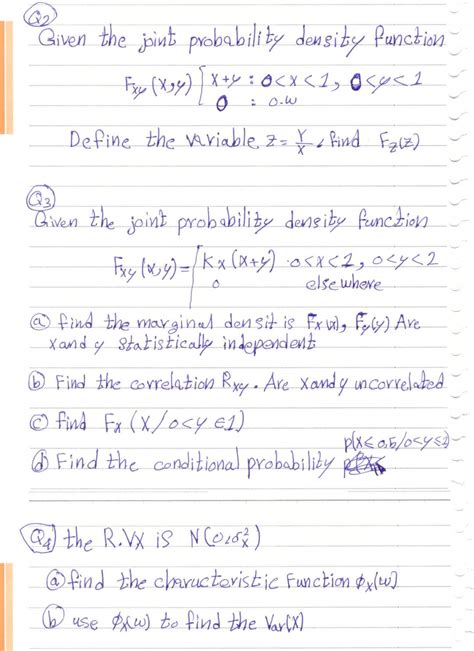 Q2
Given the joint probability density function
Fxy (x,y) [ x+y : 0<x<1, 0<y<1
0 : o.w
Define the variable z= Y/X , find Fz(z)
Q3
Given the joint probability density function
Fxy (x,y) = { Kx(x+y) . 0<x<1, 0<y<2
0 elsewhere
ⓐ find the marginal densit is Fx(x), Fy(y) Are
x and y statistically independent
ⓑ Find the correlation Rxy. Are x and y uncorrelated
ⓒ find Fx (X/0<y≤1)
p(X≤0,5/0<y≤1)
ⓓ Find the conditional probability
Q4) the R.V X is N(0,σx²)
ⓐ find the characteristic Function ϕx(w)
ⓑ use ϕx(w) to find the Var(X)